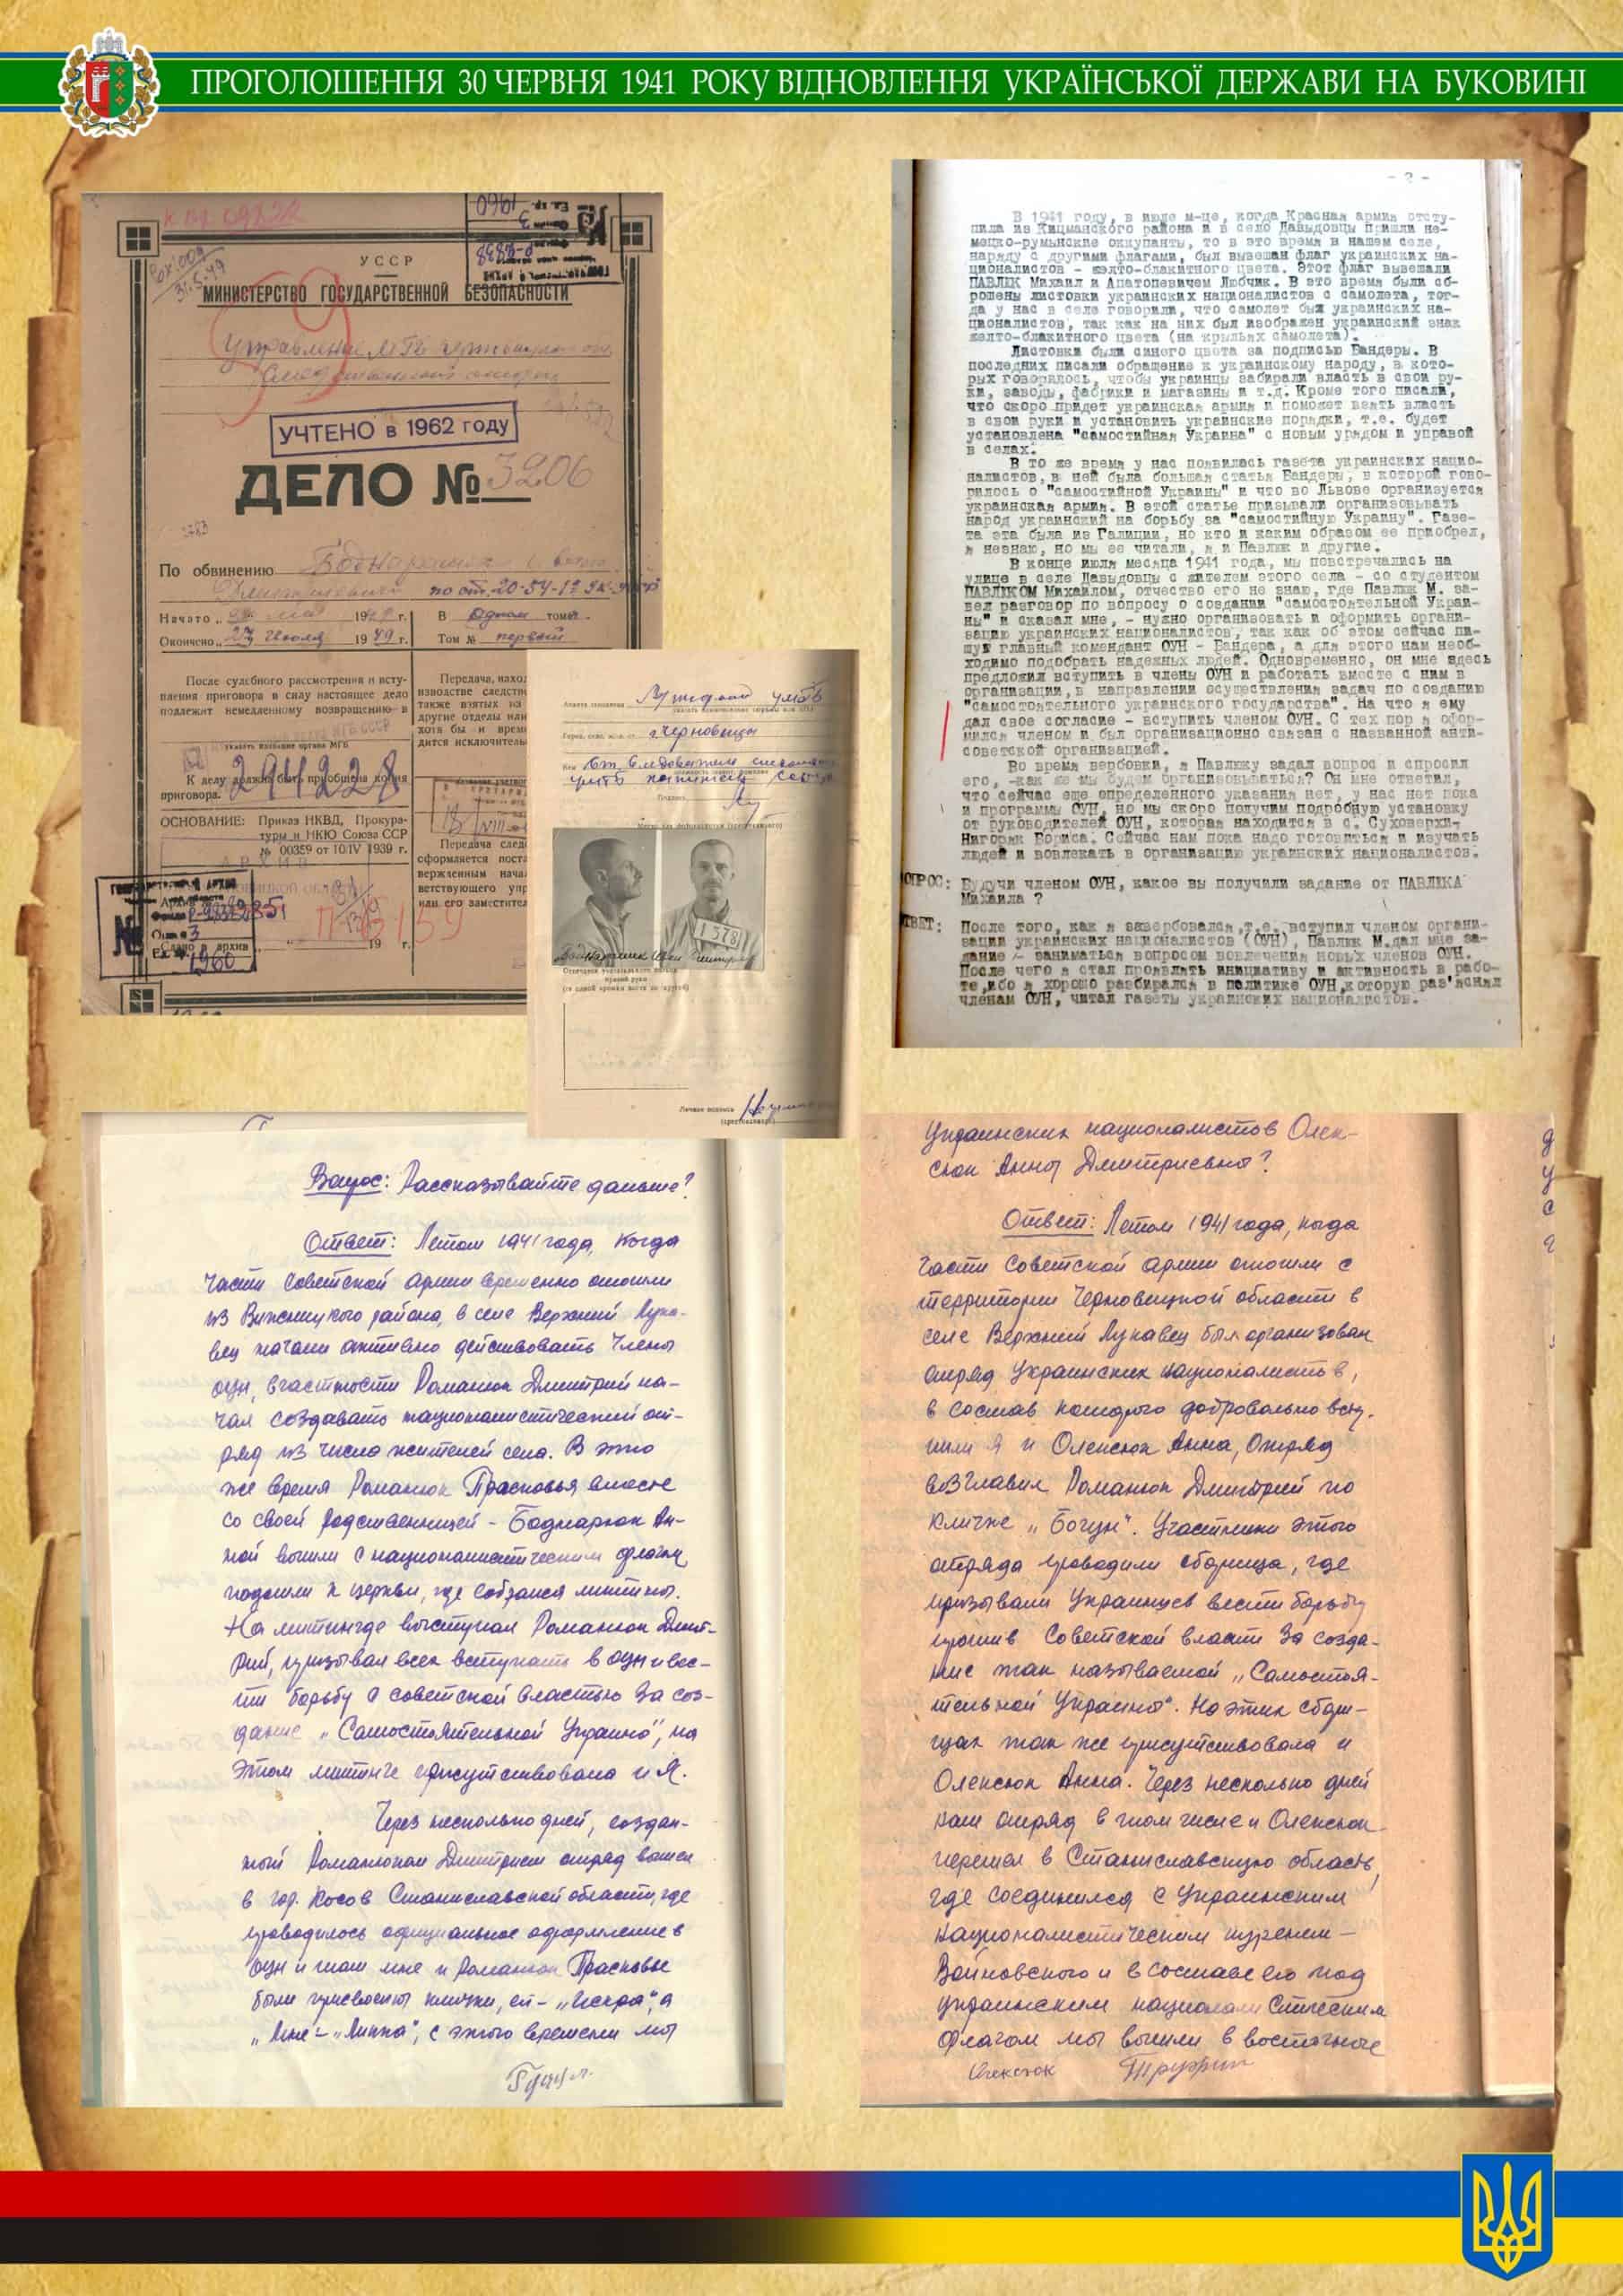 ПРОГОЛОШЕННЯ 30 ЧЕРВНЯ 1941 РОКУ ВІДНОВЛЕННЯ УКРАЇНСЬКОЇ ДЕРЖАВИ НА БУКОВИНІ
УССР
МИНИСТЕРСТВО ГОСУДАРСТВЕННОЙ БЕЗОПАСНОСТИ
УЧТЕНО в 1962 году
ДЕЛО № 3206
По обвинению
по от. 20-54-1
Начато 1949 г. В одном томе.
Окончено 1949 г. Том № первый
После судебного рассмотрения и всту-
пления приговора в силу настоящее дело
подлежит немедленному возвращению в
указать название органа МГБ
К делу должна быть приобщена копия
приговора.
294228
ОСНОВАНИЕ: Приказ НКВД, Прокура-
туры и НКЮ Союза ССР
№ 00359 от 10/IV 1939 г.
Сдано в архив 19 г.
Передача, наход
изводстве следств
также взятых на
другие отделы или
хотя бы и врем
дится исключитель
Передача след
оформляется поста
вержденным начал
ветствующего упр
или его заместител
г. Черновцы
1378
Личная подпись
- 2 -
В 1941 году, в июле м-це, когда Красная армия отсту-
пила из Кицманского района и в село Давыдовцы пришли не-
мецко-румынские оккупанты, то в это время в нашем селе,
наряду с другими флагами, был вывешан флаг украинских на-
ционалистов - желто-блакитного цвета. Этот флаг вывешали
ПАВЛЮК Михаил и Апатопевичем Любчик. В это время были сб-
рошены листовки украинских националистов с самолета, тог-
да у нас в селе говорили, что самолет был украинских на-
ционалистов, так как на них был изображен украинский знак
желто-блакитного цвета (на крыльях самолета).
Листовки были синего цвета за подписью Бандеры. В
последних писали обращение к украинскому народу, в кото-
рых говорилось, чтобы украинцы забирали власть в свои ру-
ки, заводы, фабрики и магазины и т.д. Кроме того писали,
что скоро придет украинская армия и поможет взять власть
в свои руки и установить украинские порядки, т.е. будет
установлена "самостийная Украина" с новым урядом и управой
в селах.
В то же время у нас появилась газета украинских нацио-
налистов, в ней была большая статья Бандеры, в которой гово-
рилось о "самостийной Украины" и что во Львове организуется
украинская армия. В этой статье призывали организовывать
народ украинский на борьбу за "самостийную Украину". Газе-
та эта была из Галиции, но кто и каким образом ее приобрел,
я незнаю, но мы ее читали, я и Павлюк и другие.
В конце июля месяца 1941 года, мы повстречались на
улице в селе Давыдовцы с жителем этого села - со студентом
ПАВЛЮКОМ Михаилом, отчество его не знаю, где Павлюк М. за-
вел разговор по вопросу о создании "самостоятельной Украи-
ны" и сказал мне, - нужно организовать и оформить органи-
зацию украинских националистов, так как об этом сейчас пи-
шут главный комендант ОУН - Бандера, а для этого нам необ-
ходимо подобрать надежных людей. Одновременно, он мне здесь
предложил вступить в члены ОУН и работать вместе с ним в
организации, в направлении осуществления задач по созданию
"самостоятельного украинского государства". На что я ему
дал свое согласие - вступить членом ОУН. С тех пор я офор-
мился членом и был организационно связан с названной анти-
советской организацией.
Во время вербовки, я Павлюку задал вопрос и спросил
его, -как же мы будем организовываться? Он мне ответил,
что сейчас еще определенного указания нет, у нас нет пока
и программы ОУН, но мы скоро получим подробную установку
от руководителей ОУН, которая находится в с. Суховерхи-
Нигорян Бориса. Сейчас нам пока надо готовиться и изучать
людей и вовлекать в организацию украинских националистов.
ОПРОС: Будучи членом ОУН, какое вы получили задание от ПАВЛЮКА
Михаила ?
ТВЕТ: После того, как я завербовался,т.е. вступил членом органи-
зации украинских националистов (ОУН), Павлюк М.дал мне за-
дание - заниматься вопросом вовлечения новых членов ОУН.
После чего я стал проявлять инициативу и активность в рабо-
те,ибо я хорошо разбирался в политике ОУН,которую раз'яснял
членам ОУН, читал газеты украинских националистов.
Вопрос: Рассказывайте дальше?
Ответ: Летом 1941 года, когда
части Советской армии временно отошли
из Вижницкого района, в селе Верхний Лука-
вец начали активно действовать члены
ОУН, в частности Романюк Дмитрий на-
чал создавать националистический от-
ряд из числа жителей села. В это
же время Романюк Прасковья вместе
со своей родственницей - Боднарюк Ан-
ной вышли с националистическим флагом
подошли к церкви, где собрался митинг.
На митинге выступал Романюк Дмит-
рий, призывал всех вступать в ОУН и вес-
ти борьбу с советской властью за соз-
дание „Самостоятельной Украины", на
этом митинге присутствовала и я.
Через несколько дней, создан-
ный Романюком Дмитрием отряд вышел
в гор. Косов Станиславской области, где
проводилось официальное оформление в
ОУН и там мне и Романюк Прасковье
были присвоены клички, ей - „Искра", а
мне - „Липка", с этого времени мы
Украинских националистов Олек-
сюк Анны Дмитриевны?
Ответ: Летом 1941 года, когда
части Советской армии отошли с
территории Черновицкой области в
селе Верхний Лукавец был организован
отряд Украинских националистов,
в состав которого добровольно всту-
пили я и Олексюк Анна, отряд
возглавил Романюк Дмитрий по
кличке „Богун". Участники этого
отряда проводили сборища, где
призывали Украинцев вести борьбу
против Советской власти за созда-
ние так называемой „Самостоя-
тельной Украины". На этих сбори-
щах так же присутствовала и
Олексюк Анна. Через несколько дней
наш отряд в том числе и Олексюк
перешел в Станиславскую область,
где соединился с Украинским
националистическим куренем -
Войновского и в составе его под
украинским националистическим
флагом мы вышли в восточные
Олексюк